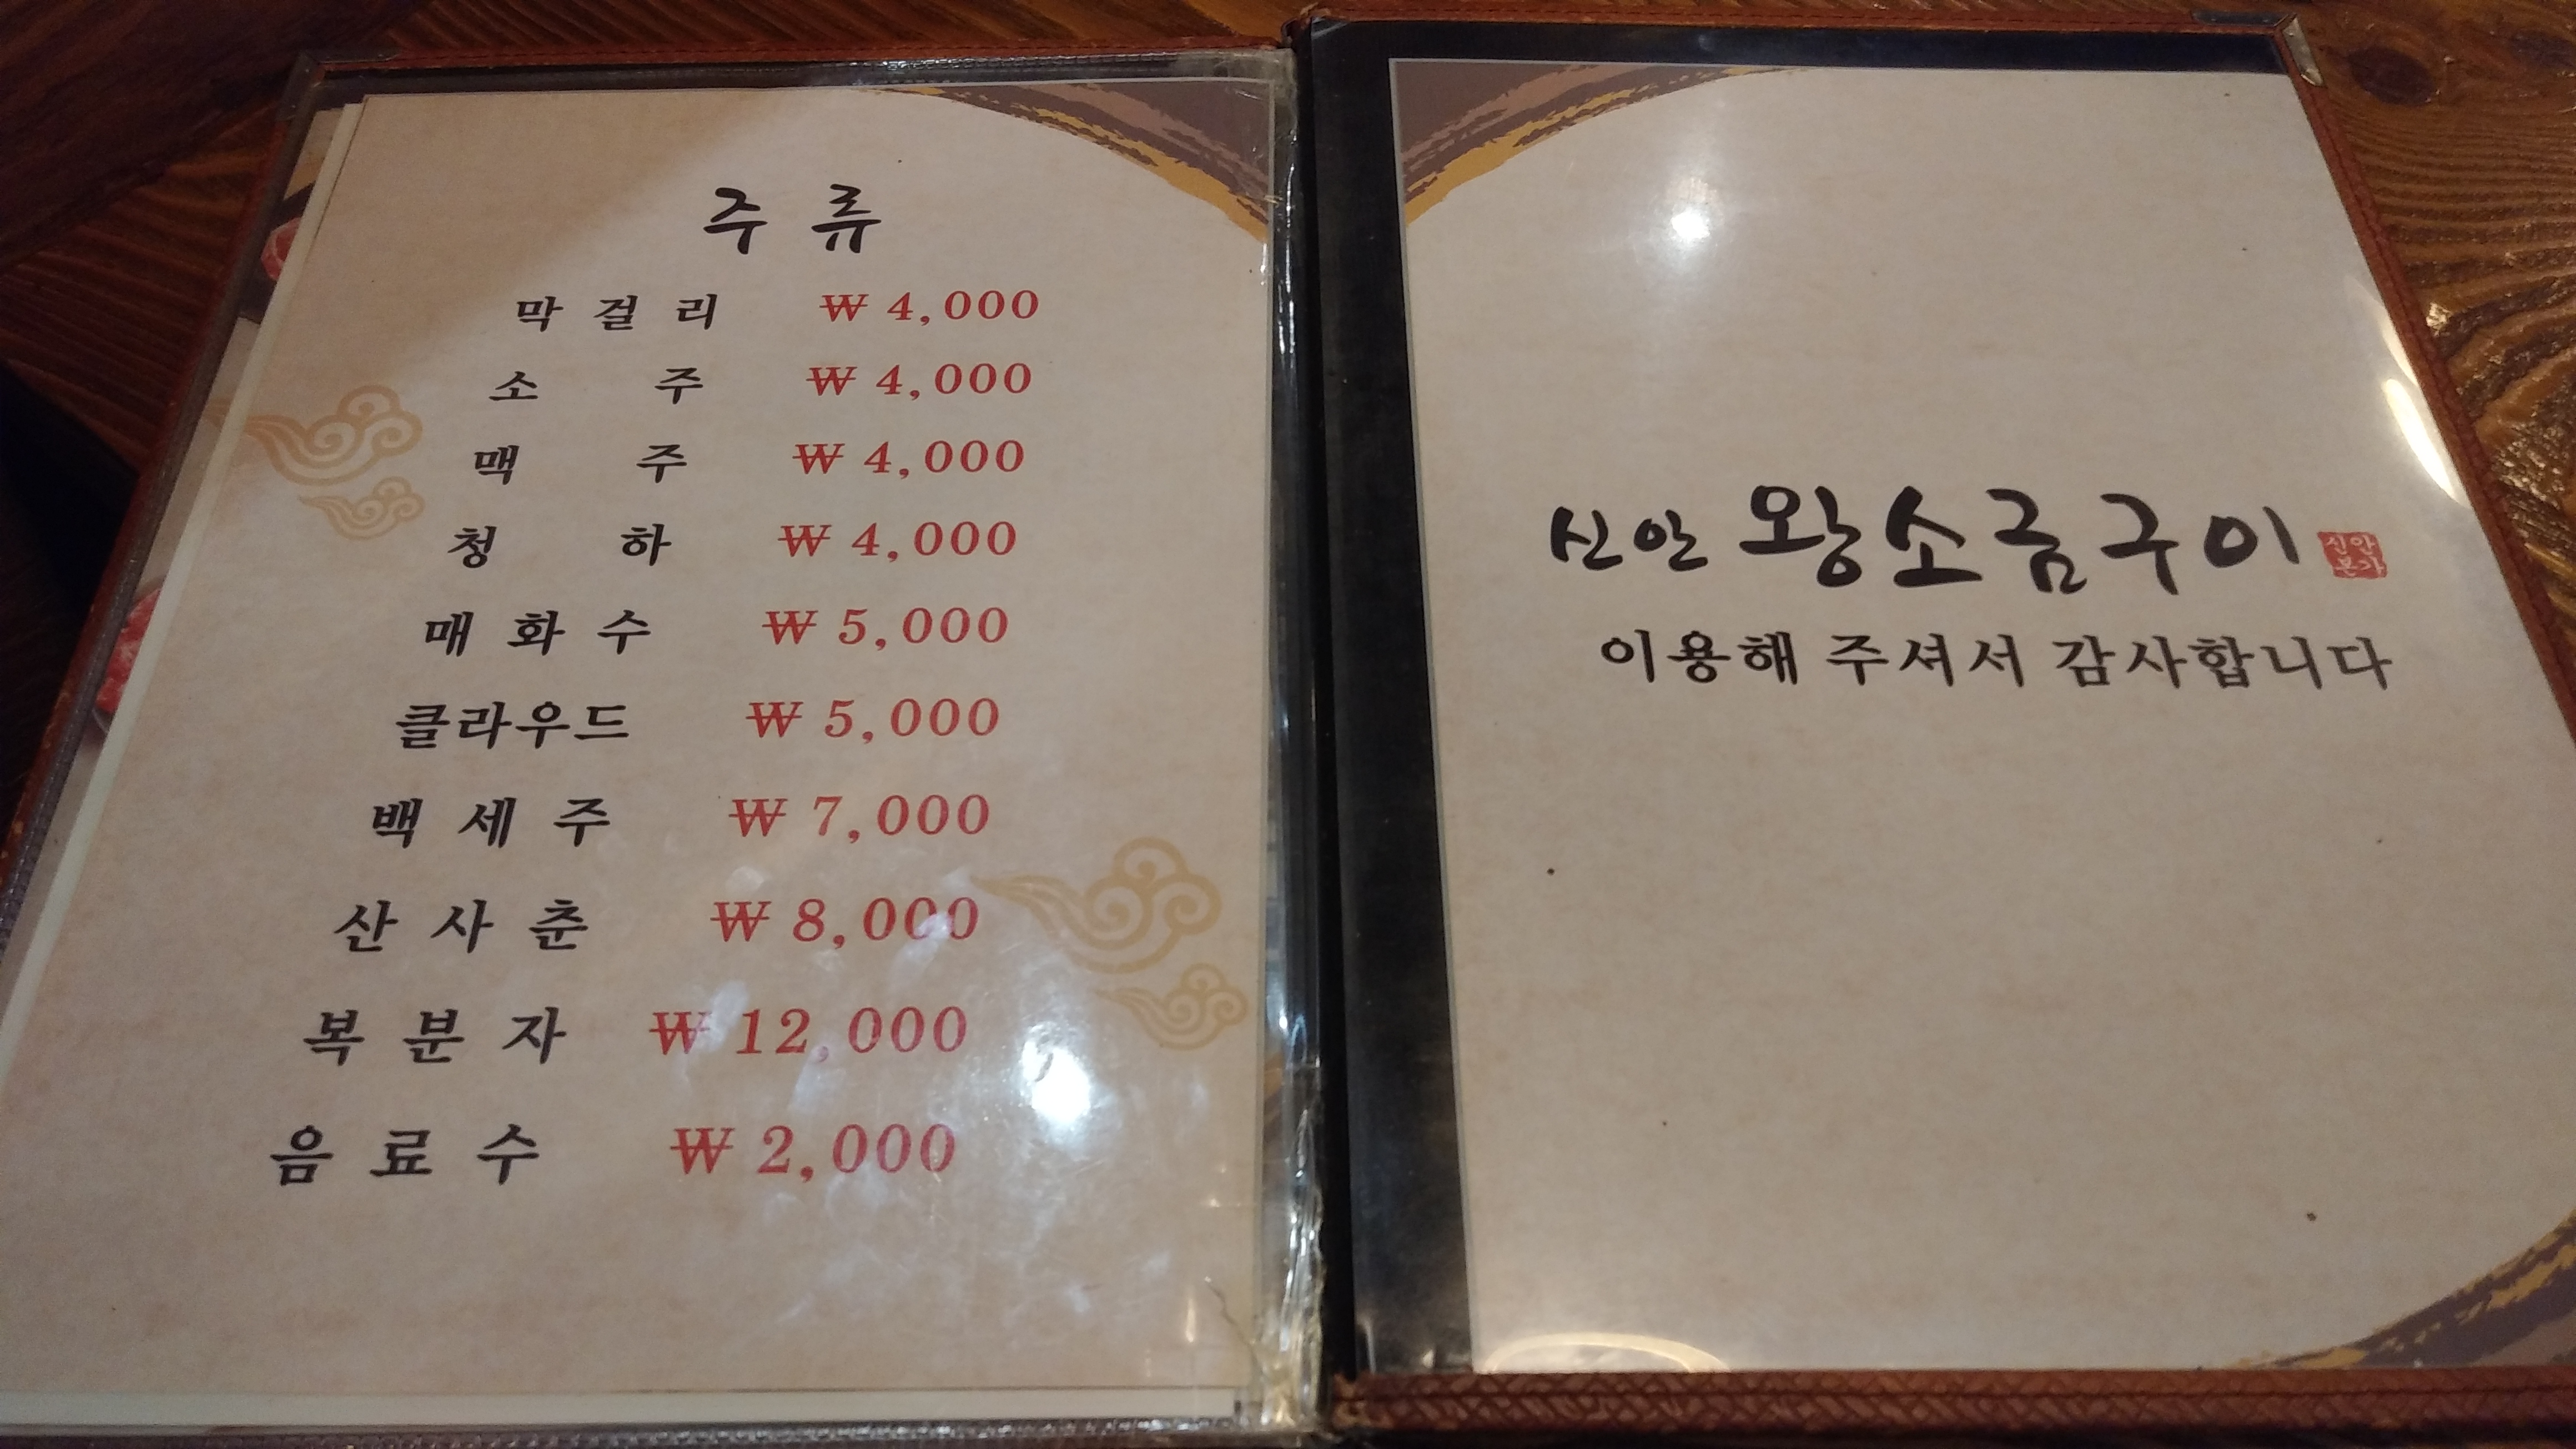 주 류
막 걸 리 ₩ 4,000
소 주 ₩ 4,000
맥 주 ₩ 4,000
청 하 ₩ 4,000
매 화 수 ₩ 5,000
클라우드 ₩ 5,000
백 세 주 ₩ 7,000
산 사 춘 ₩ 8,000
복 분 자 ₩ 12,000
음 료 수 ₩ 2,000
신안 왕소금구이
신안
본가
이용해 주셔서 감사합니다